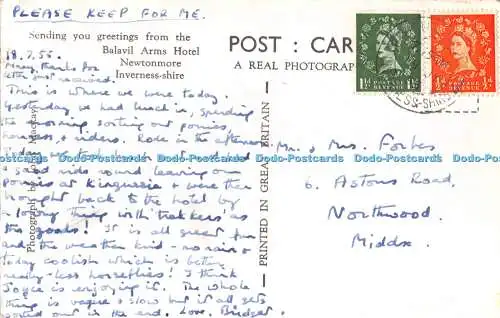 PLEASE KEEP FOR ME.
Sending you greetings from the
Balavil Arms Hotel
Newtonmore
Inverness-shire
POST : CAR
A REAL PHOTOGRAP
18.7.55.
Many thanks for
letter just received.
This is where we were today.
Yesterday we had lunch in, spending
the morning sorting out ponies,
houses, & riders. Rode in the afternoon.
Today we took
& rode round leaving our
ponies at Kingussie & were then
brought back to the hotel by
a lorry thing with trekkers as
the goods! It is all great fun
and the weather kind - no rain &
today coolish which is better
really - less horseflies! I think
Joyce is enjoying it. The whole
thing is vague & slow but it all gets
sorted out in the end. Love, Bridget.
Photograph by
PRINTED IN GREAT BRITAIN
POSTAGE
REVENUE
1½d
POSTAGE
REVENUE
½d
NESS-SHIRE
Mr. & Mrs. Forbes
6, Astons Road,
Northwood,
Middx.
Dodo-Postcards Dodo-Postcards Dodo-Postcards Dodo-Postcards Dodo-Postcards